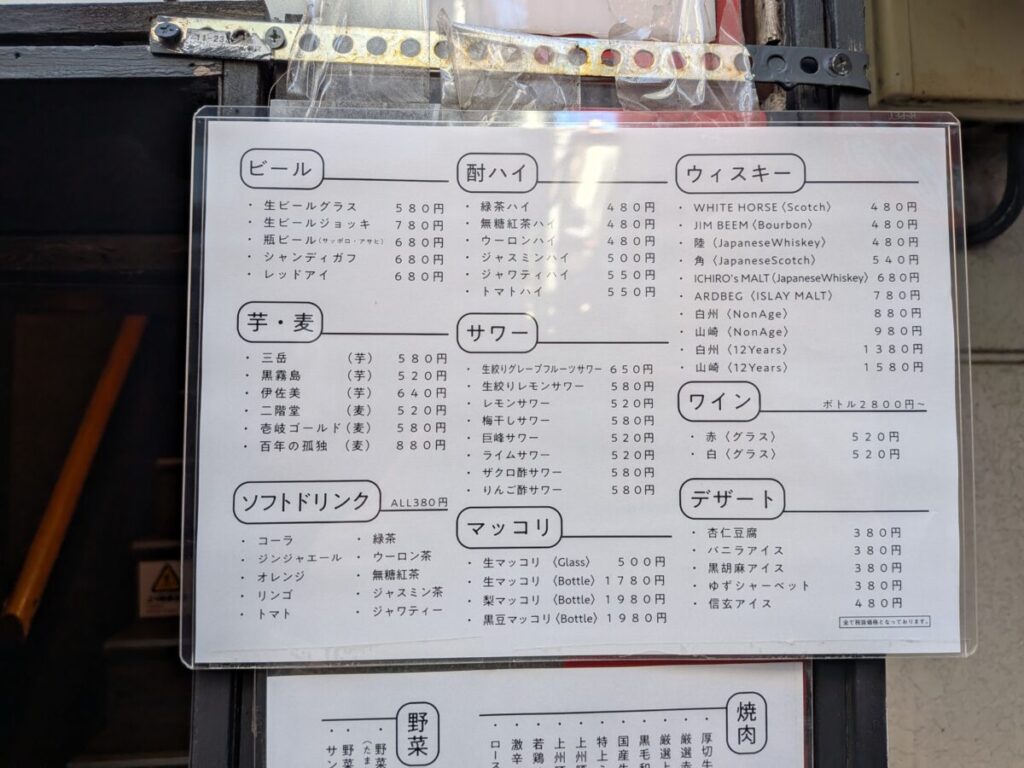 11-23
ビール
・生ビールグラス 580円
・生ビールジョッキ 780円
・瓶ビール(サッポロ・アサヒ) 680円
・シャンディガフ 680円
・レッドアイ 680円
芋・麦
・三岳 (芋) 580円
・黒霧島 (芋) 520円
・伊佐美 (芋) 640円
・二階堂 (麦) 520円
・壱岐ゴールド(麦) 580円
・百年の孤独 (麦) 880円
ソフトドリンク ALL380円
・コーラ
・ジンジャエール
・オレンジ
・リンゴ
・トマト
・緑茶
・ウーロン茶
・無糖紅茶
・ジャスミン茶
・ジャワティー
酎ハイ
・緑茶ハイ 480円
・無糖紅茶ハイ 480円
・ウーロンハイ 480円
・ジャスミンハイ 500円
・ジャワティハイ 550円
・トマトハイ 550円
サワー
・生絞りグレープフルーツサワー 650円
・生絞りレモンサワー 580円
・レモンサワー 520円
・梅干しサワー 580円
・巨峰サワー 520円
・ライムサワー 520円
・ザクロ酢サワー 580円
・りんご酢サワー 580円
マッコリ
・生マッコリ 〈Glass〉 500円
・生マッコリ 〈Bottle〉 1780円
・梨マッコリ 〈Bottle〉 1980円
・黒豆マッコリ〈Bottle〉 1980円
ウィスキー
・WHITE HORSE〈Scotch〉 480円
・JIM BEEM〈Bourbon〉 480円
・陸〈JapaneseWhiskey〉 480円
・角〈JapaneseScotch〉 540円
・ICHIRO's MALT〈JapaneseWhiskey〉 680円
・ARDBEG〈ISLAY MALT〉 780円
・白州〈NonAge〉 880円
・山崎〈NonAge〉 980円
・白州〈12Years〉 1380円
・山崎〈12Years〉 1580円
ワイン ボトル2800円～
・赤〈グラス〉 520円
・白〈グラス〉 520円
デザート
・杏仁豆腐 380円
・バニラアイス 380円
・黒胡麻アイス 380円
・ゆずシャーベット 380円
・信玄アイス 480円
全て税抜価格となっております。
焼肉
・厚切牛
・厳選赤
・厳選上
・黒毛和
・国産牛
・特上
・上州
・上州
・若鶏
・激辛
・ロース
野菜
・野菜
(たま
・野菜
・サン